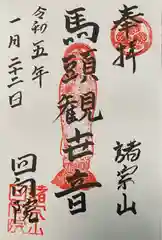 奉拝
諸宗山
馬頭観世音
令和五年
一月二十二日
回向院